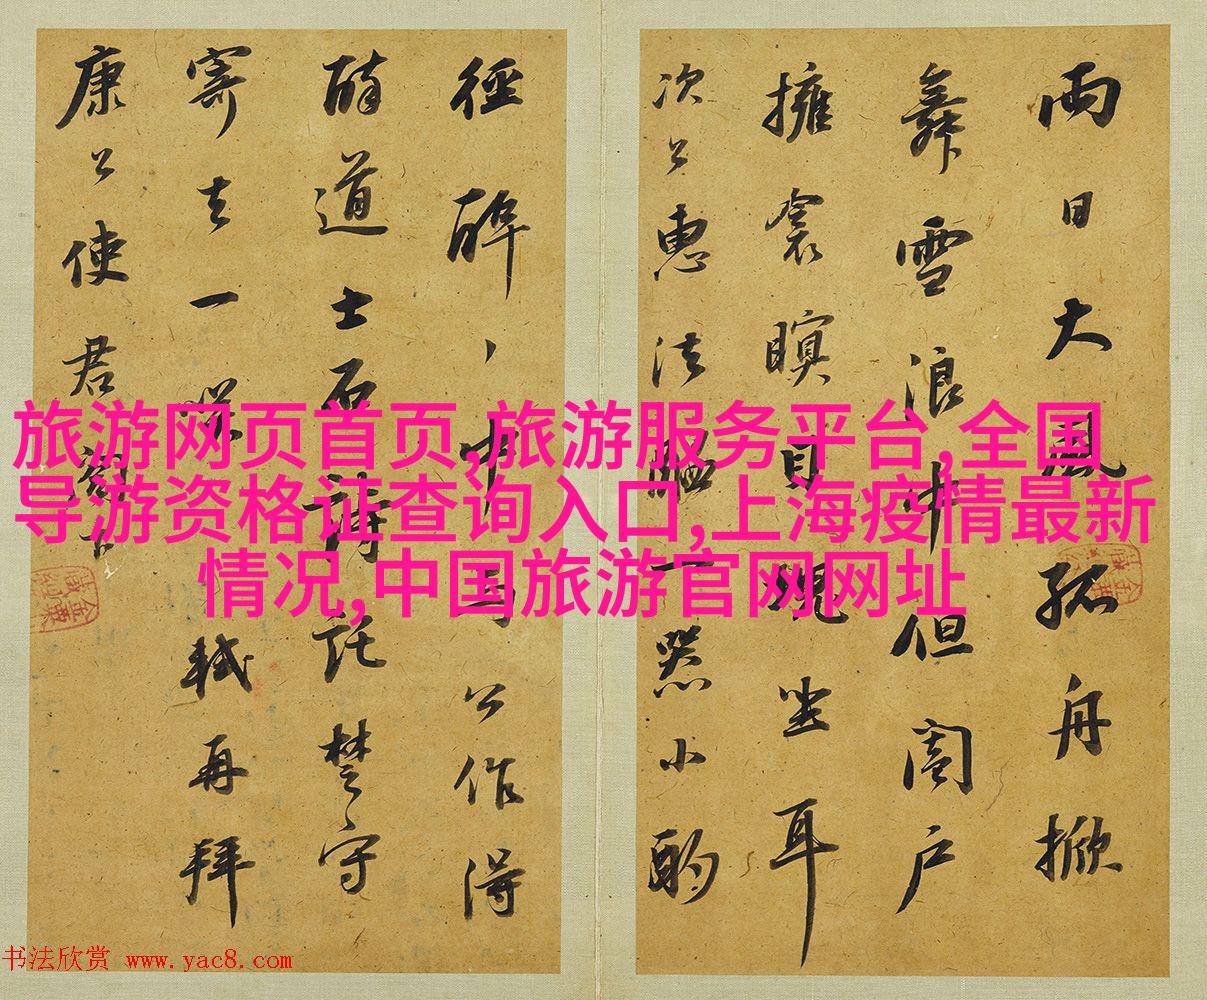 兩日大風孤舟掀
舞雪浪中但闔戶
擁衾瞑目塊坐耳
次公惠法醞一器小酌
徑醉、中與公作得
醉道士石詩託楚守
寄去一噱軾再拜
康公使君閣下
旅游网页首页,旅游服务平台,全国
导游资格证查询入口,上海疫情最新
情况,中国旅游官网网址
书法欣赏 www.yac8.com